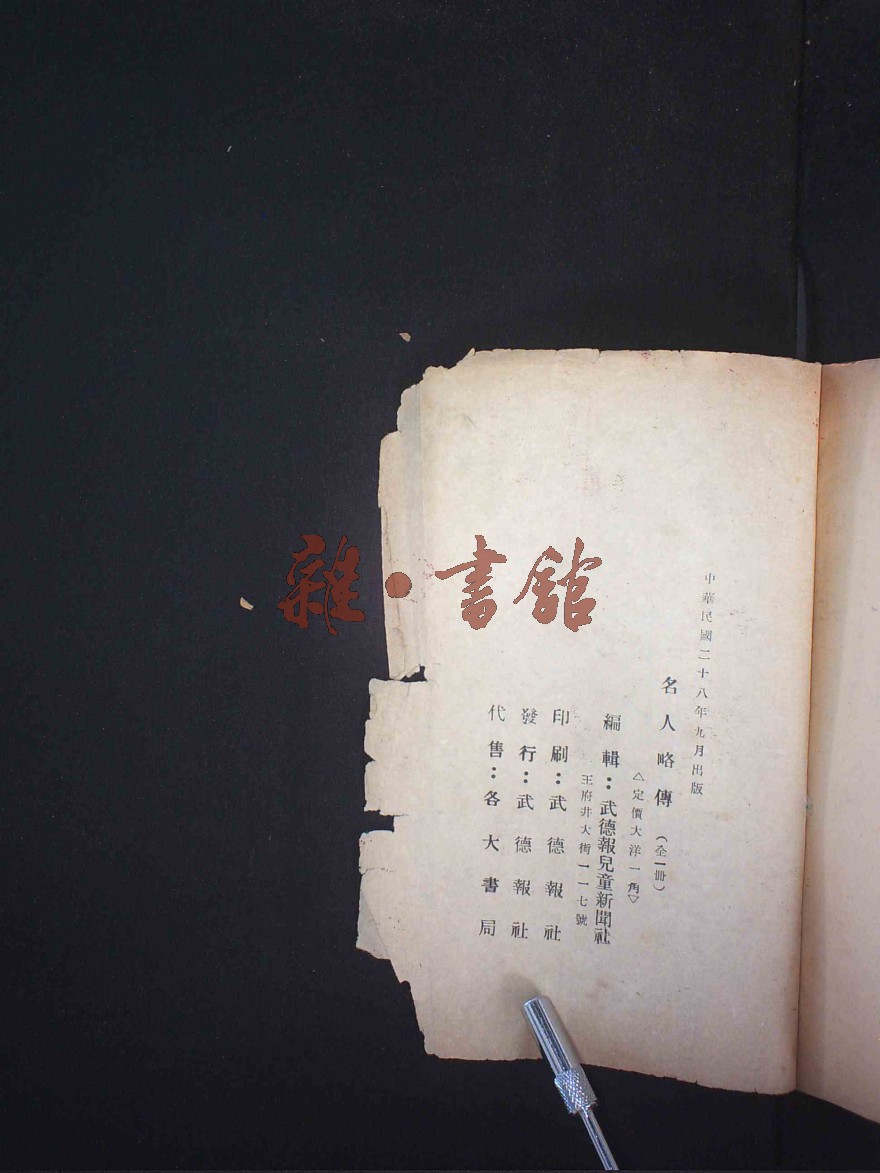 中華民國二十八年九月出版
名人略傳（全一冊）
△定價大洋一角▽
編輯：武德報兒童新聞社
王府井大街一一七號
印刷：武德報社
發行：武德報社
代售：各大書局
雜·書館